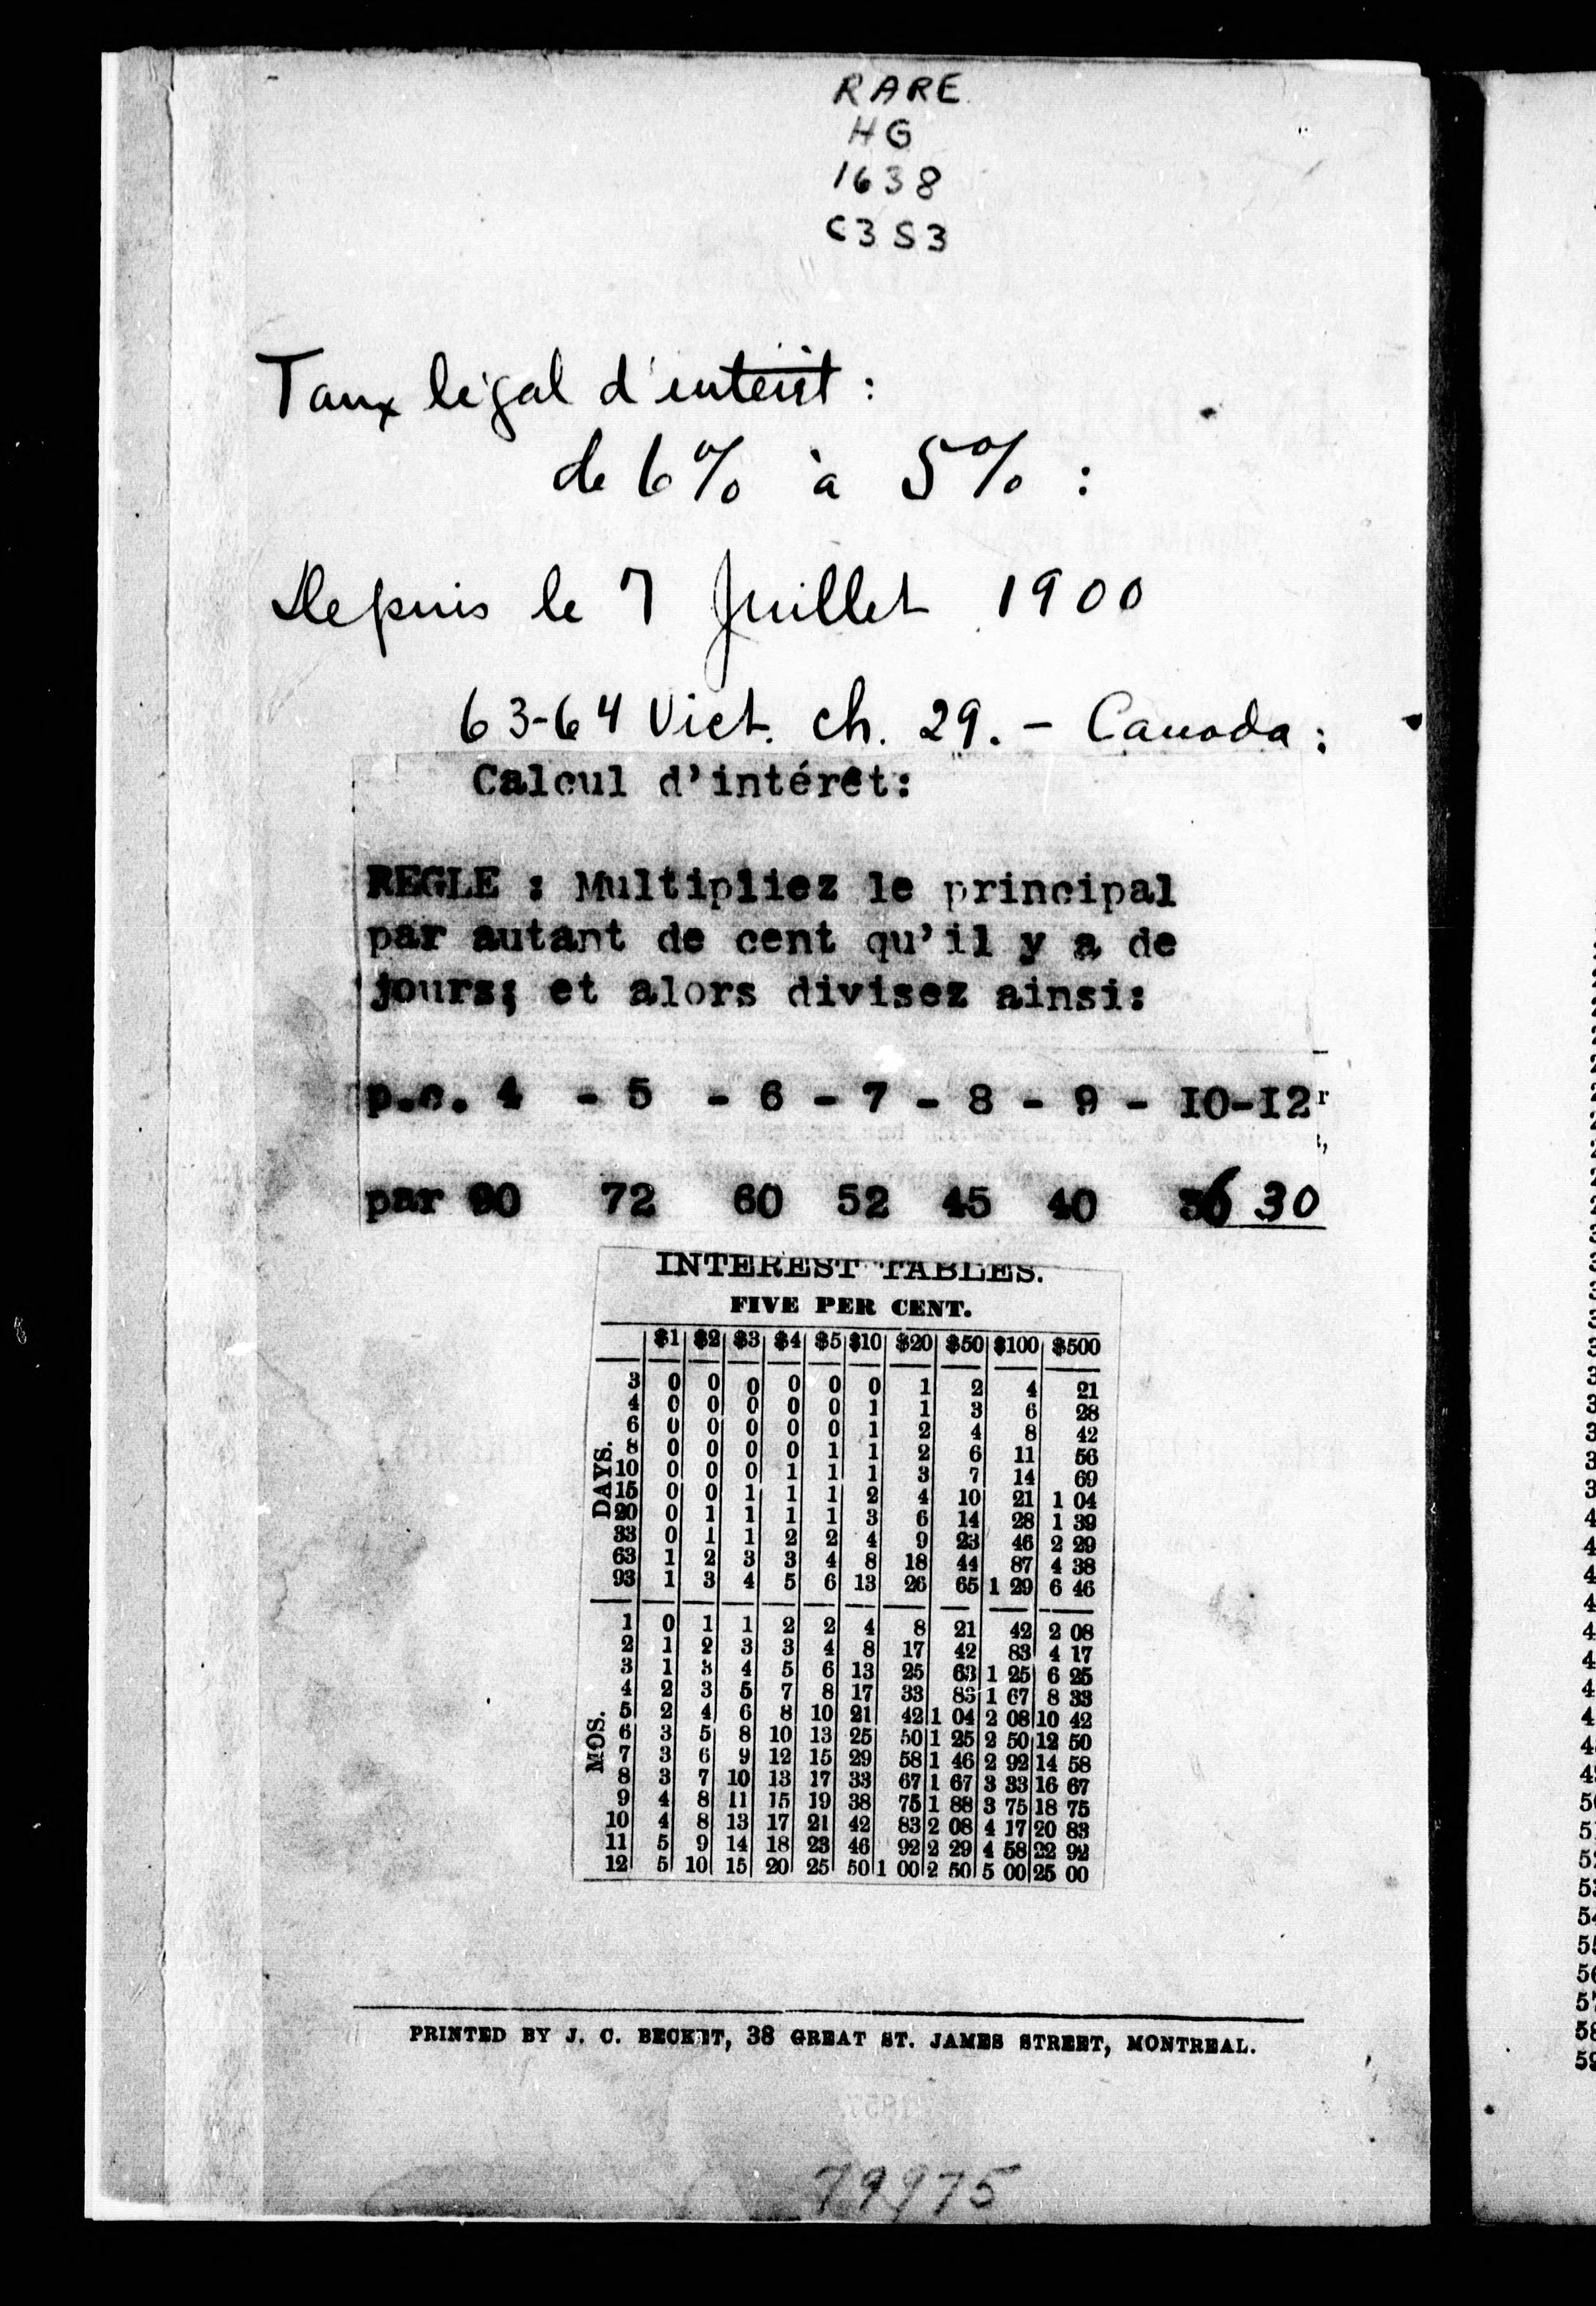 RARE
HG
1638
C3 S3
Taux légal d'intérêt :
de 6% à 5% :
Depuis le 7 Juillet 1900
63-64 Vict. ch. 29. - Canada :
Calcul d'intérêt:
REGLE : Multipliez le principal
par autant de cent qu'il y a de
jours; et alors divisez ainsi:
p.c. 4 - 5 - 6 - 7 - 8 - 9 - IO-I2
par 90 72 60 52 45 40 36 30
INTEREST TABLES.
FIVE PER CENT.
$1 $2 $3 $4 $5 $10 $20 $50 $100 $500
DAYS.
3 0 0 0 0 0 0 1 2 4 21
4 0 0 0 0 0 1 1 3 6 28
6 0 0 0 0 0 1 2 4 8 42
8 0 0 0 0 1 1 2 6 11 56
10 0 0 0 1 1 1 3 7 14 69
15 0 0 1 1 1 2 4 10 21 1 04
20 0 1 1 1 1 3 6 14 28 1 39
33 0 1 1 2 2 4 9 23 46 2 29
63 1 2 3 3 4 8 18 44 87 4 38
93 1 3 4 5 6 13 26 65 1 29 6 46
MOS.
1 0 1 1 2 2 4 8 21 42 2 08
2 1 2 3 3 4 8 17 42 83 4 17
3 1 3 4 5 6 13 25 63 1 25 6 25
4 2 3 5 7 8 17 33 83 1 67 8 33
5 2 4 6 8 10 21 42 1 04 2 08 10 42
6 3 5 8 10 13 25 50 1 25 2 50 12 50
7 3 6 9 12 15 29 58 1 46 2 92 14 58
8 3 7 10 13 17 33 67 1 67 3 33 16 67
9 4 8 11 15 19 38 75 1 88 3 75 18 75
10 4 8 13 17 21 42 83 2 08 4 17 20 83
11 5 9 14 18 23 46 92 2 29 4 58 22 92
12 5 10 15 20 25 50 1 00 2 50 5 00 25 00
PRINTED BY J. C. BECKET, 38 GREAT ST. JAMES STREET, MONTREAL.
79975